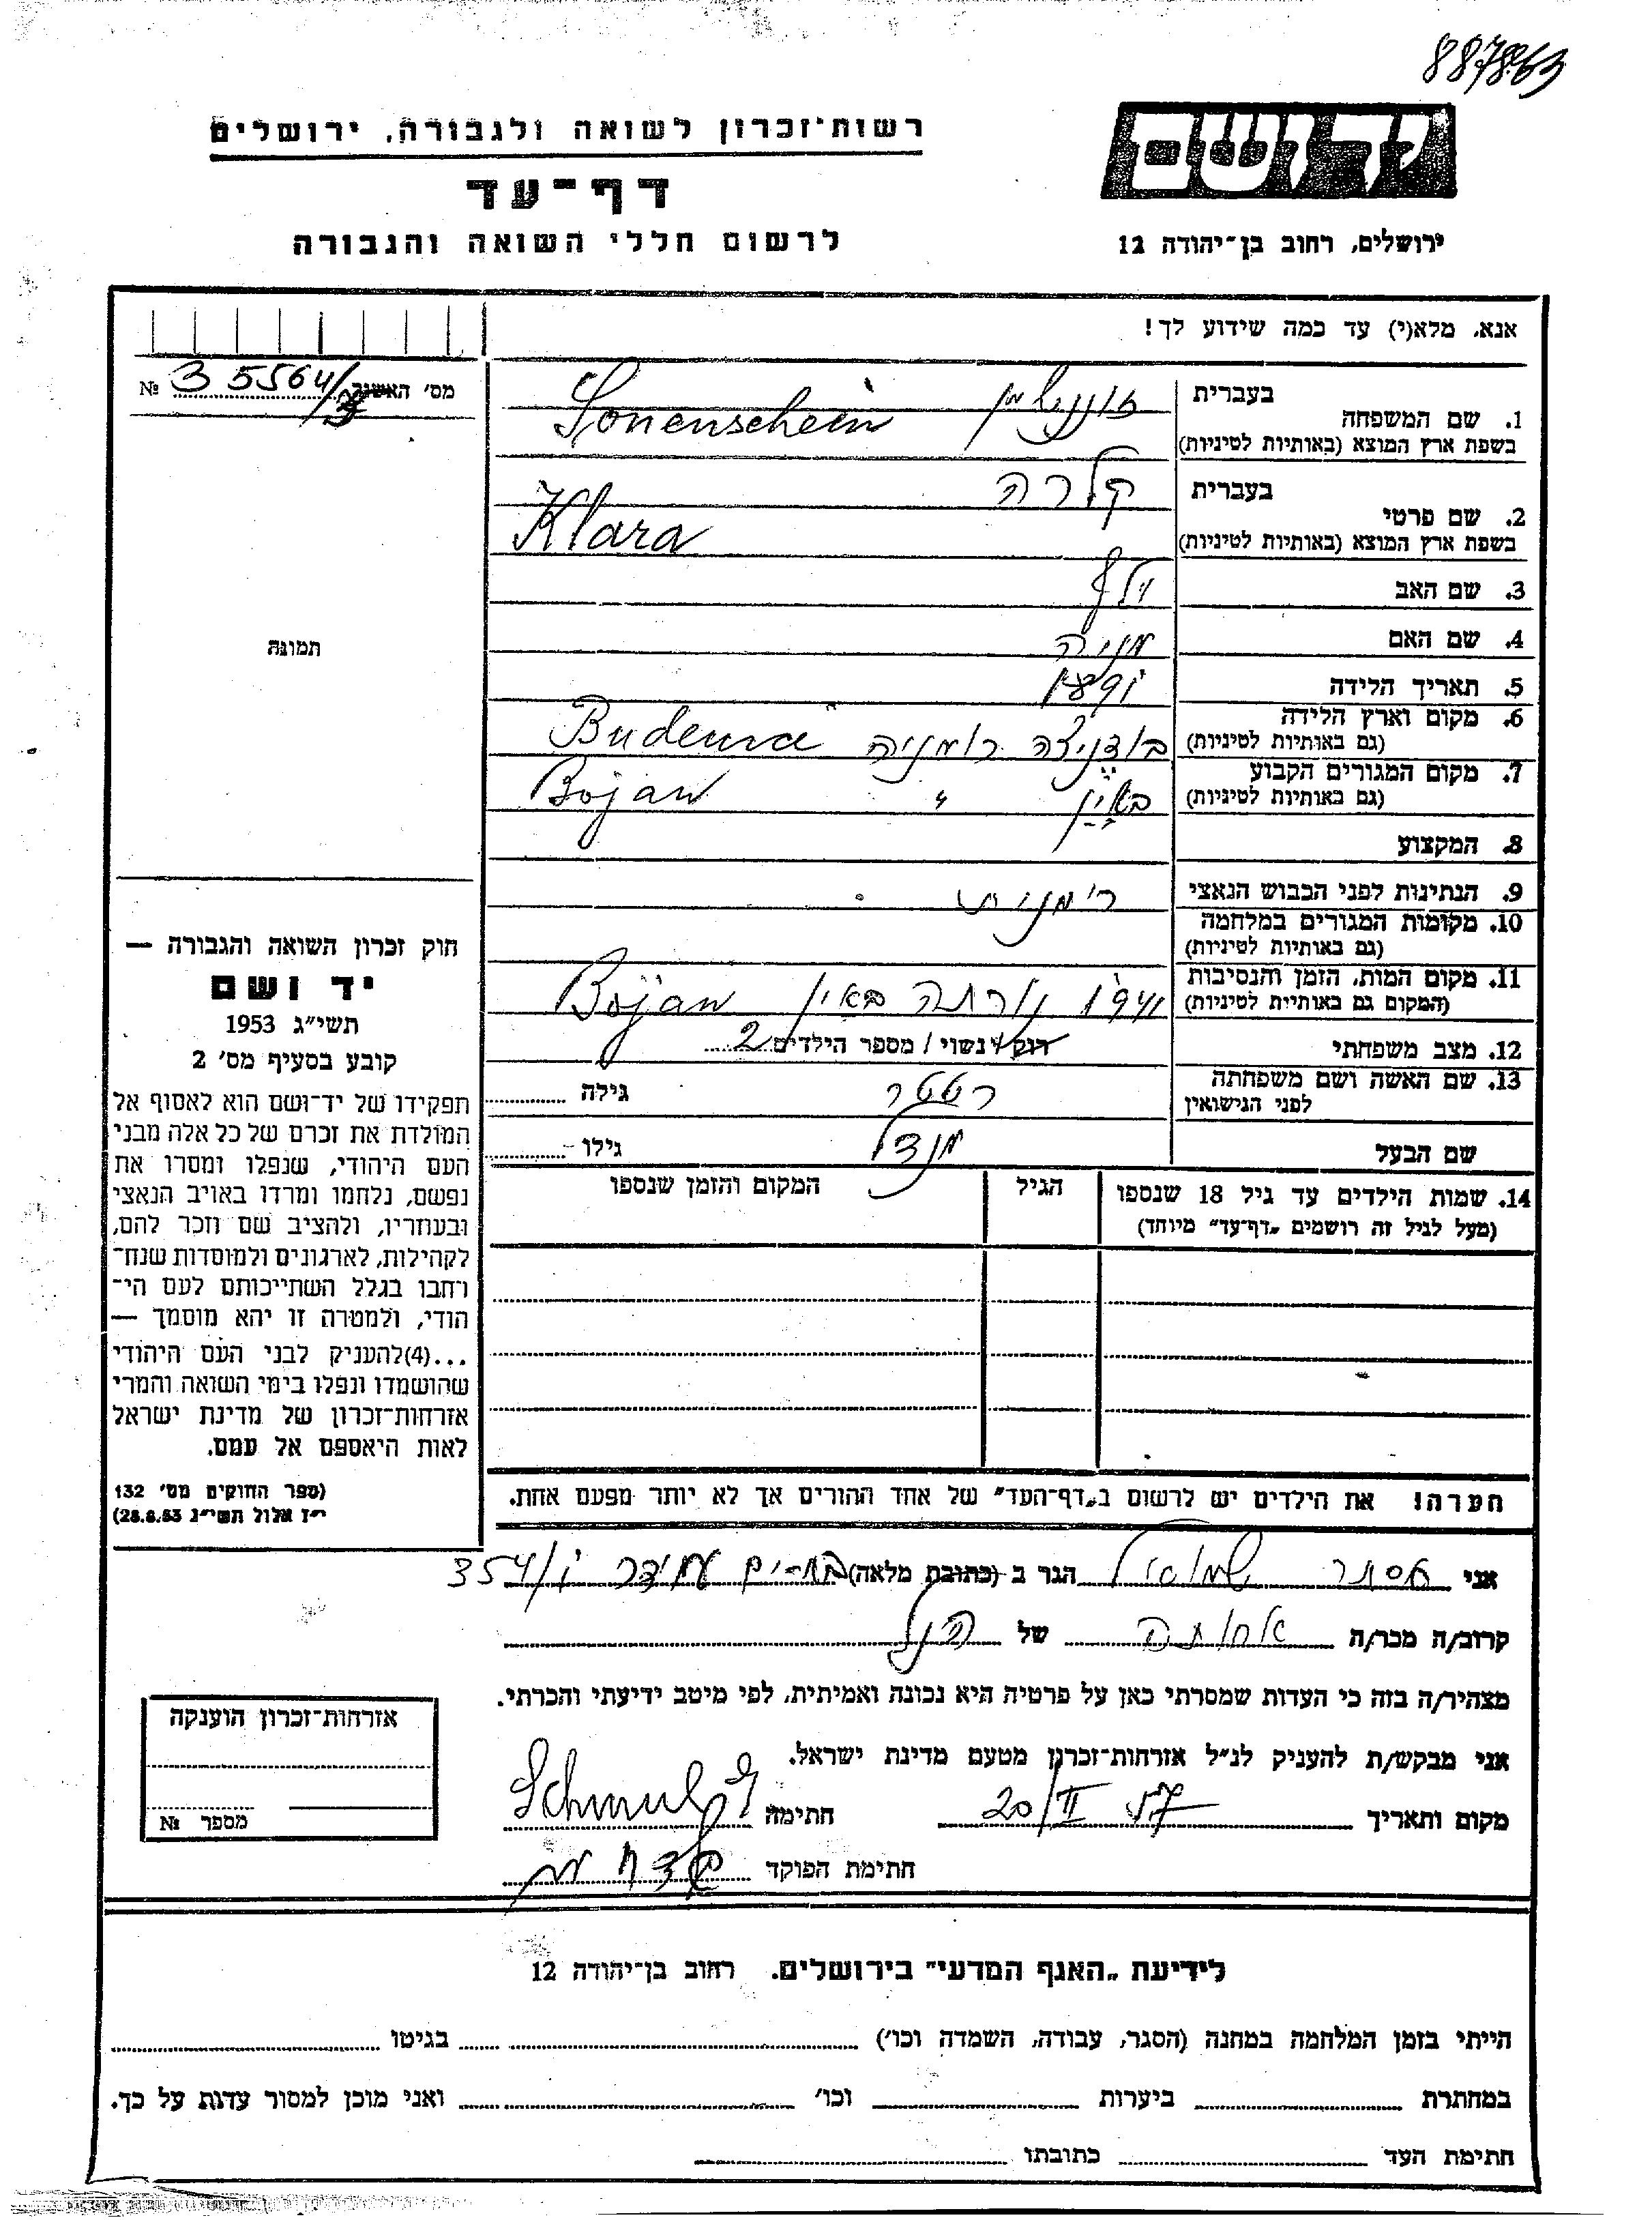 887863
יד ושם
רשות־זכרון לשואה ולגבורה, ירושלים
דף־עד
ירושלים, רחוב בן־יהודה 12
לרשום חללי השואה והגבורה
אנא, מלא(י) עד כמה שידוע לך!
מס׳ האשור 35564/ №
בעברית
1. שם המשפחה
בשפת ארץ המוצא (באותיות לטיניות) Sonenschein
בעברית קלרה
2. שם פרטי
בשפת ארץ המוצא (באותיות לטיניות) Klara
3. שם האב
4. שם האם מניה
5. תאריך הלידה 1891
6. מקום וארץ הלידה בודניצה רומניה
(גם באותיות לטיניות)
7. מקום המגורים הקבוע באיאן " Bojan
(גם באותיות לטיניות)
8. המקצוע
9. הנתינות לפני הכבוש הנאצי רומנית
10. מקומות המגורים במלחמה
(גם באותיות לטיניות)
11. מקום המות, הזמן והנסיבות 1941 נורתה באיאן Bojan
(המקום גם באותיות לטיניות)
12. מצב משפחתי רוק / נשוי / מספר הילדים 2
13. שם האשה ושם משפחתה גילה
לפני הנישואין
שם הבעל מנדל גילו
14. שמות הילדים עד גיל 18 שנספו הגיל המקום והזמן שנספו
(מעל לגיל זה רושמים „דף־עד״ מיוחד)
תמונה
חוק זכרון השואה והגבורה —
יד ושם
תשי״ג 1953
קובע בסעיף מס׳ 2
תפקידו של יד־ושם הוא לאסוף אל
המולדת את זכרם של כל אלה מבני
העם היהודי, שנפלו ומסרו את
נפשם, נלחמו ומרדו באויב הנאצי
ובעוזריו, ולהציב שם וזכר להם,
לקהילות, לארגונים ולמוסדות שנח־
רחבו בגלל השתייכותם לעם הי־
הודי, ולמטרה זו יהא מוסמך —
...(4)להעניק לבני העם היהודי
שהושמדו ונפלו בימי השואה והמרי
אזרחות־זכרון של מדינת ישראל
לאות היאספם אל עמם.
(ספר החוקים מס׳ 132
י״ז אלול תשי״ג 28.8.53)
הערה! את הילדים יש לרשום ב„דף־העד״ של אחד ההורים אך לא יותר מפעם אחת.
אני אסתר שמואל הגר ב (כתובת מלאה) 354/
קרוב/ה מכר/ה אחותה של הנ״ל
מצהיר/ה בזה כי העדות שמסרתי כאן על פרטיה היא נכונה ואמיתית, לפי מיטב ידיעתי והכרתי.
אני מבקש/ת להעניק לנ״ל אזרחות־זכרון מטעם מדינת ישראל.
מקום ותאריך 20/II 57 חתימה
חתימת הפוקד
אזרחות־זכרון הוענקה
מספר №
לידיעת „האגף המדעי״ בירושלים. רחוב בן־יהודה 12
הייתי בזמן המלחמה במחנה (הסגר, עבודה, השמדה וכו׳) בגיטו
במחתרת ביערות וכו׳ ואני מוכן למסור עדות על כך.
חתימת העד כתובתו